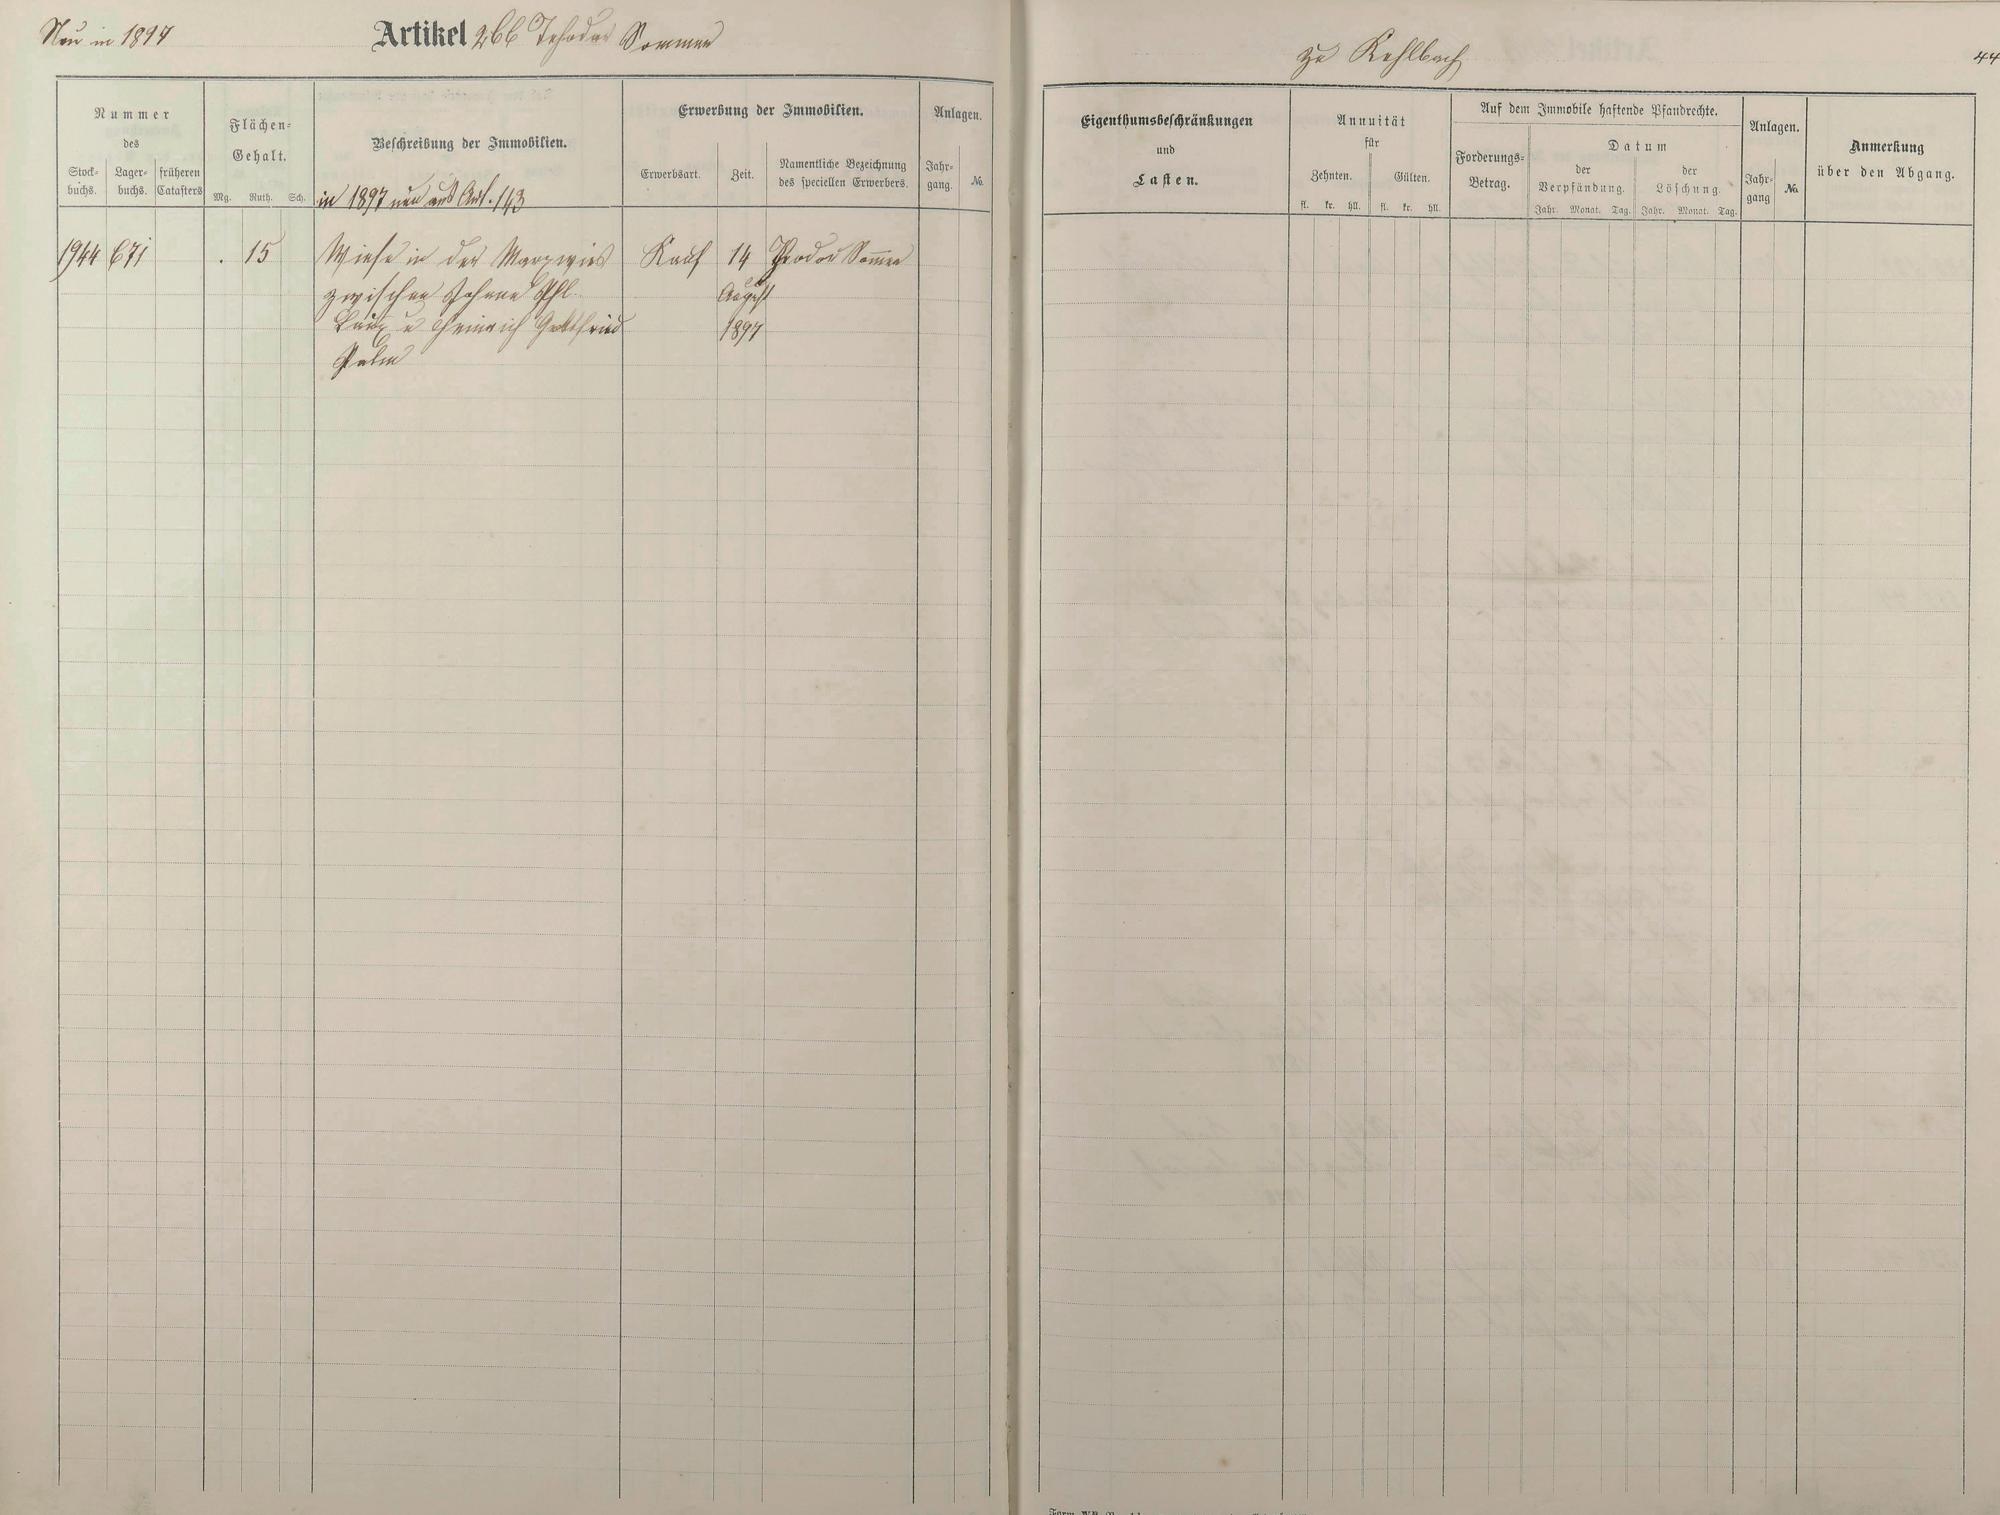 Neu in 1897
Artikel 266 Tehodor Sommer
zu Kehlbach
44
Nummer
des
Stock-
buchs.
Lager-
buchs.
früheren
Catasters
Flächen-
Gehalt.
Mg. Ruth. Sch.
Beschreibung der Immobilien.
in 1897 neu aus Art. 143
Erwerbung der Immobilien.
Erwerbsart.
Zeit.
Namentliche Bezeichnung
des speciellen Erwerbers.
Anlagen.
Jahr-
gang.
No.
Eigenthumsbeschränkungen
und
Lasten.
Annuität
für
Zehnten.
Gülten.
fl. kr. hll. fl. kr. hll.
Auf dem Immobile haftende Pfandrechte.
Forderungs-
Betrag.
Datum
der
Verpfändung.
der
Löschung.
Jahr. Monat. Tag. Jahr. Monat. Tag.
Anlagen.
Jahr-
gang
No.
Anmerkung
über den Abgang.
1944 671 . 15 Wiese in der Marxwies Kauf 14 Theodor Sommer
zwischen Johann Phl. August
u Heinrich Gottfried 1897
Palm